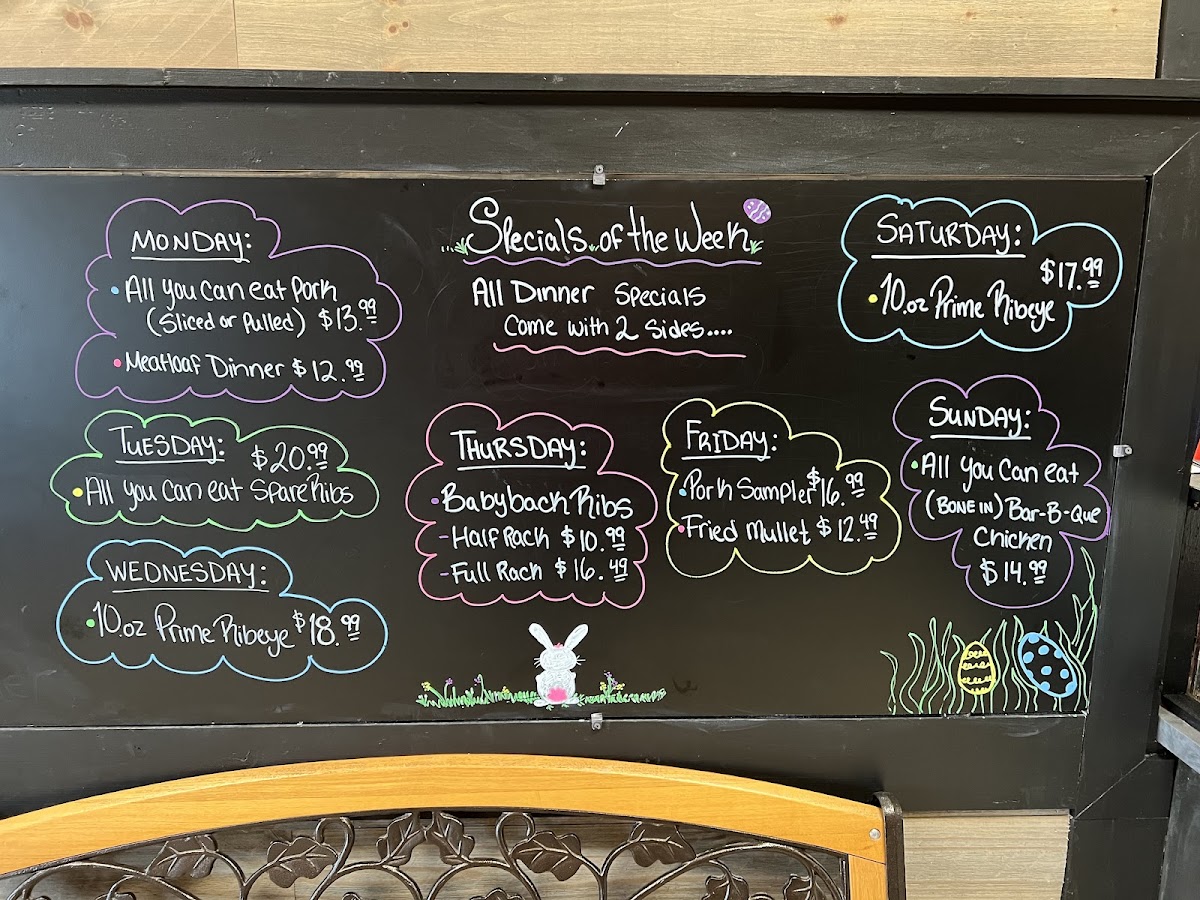 ...Specials of the Week
All Dinner Specials
Come with 2 Sides....
MONDAY:
• All you can eat Pork
(Sliced or Pulled) $13.99
• Meatloaf Dinner $12.99
TUESDAY: $20.99
• All you can eat SpareRibs
WEDNESDAY:
• 10.oz Prime Ribeye $18.99
THURSDAY:
• Babyback Ribs
- Half Rack $10.99
- Full Rack $16.49
FRIDAY:
• Pork Sampler $16.99
• Fried Mullet $12.49
SATURDAY:
$17.99
• 10.oz Prime Ribeye
SUNDAY:
• All you Can eat
(BONE IN) Bar-B-Que
Chicken
$14.99